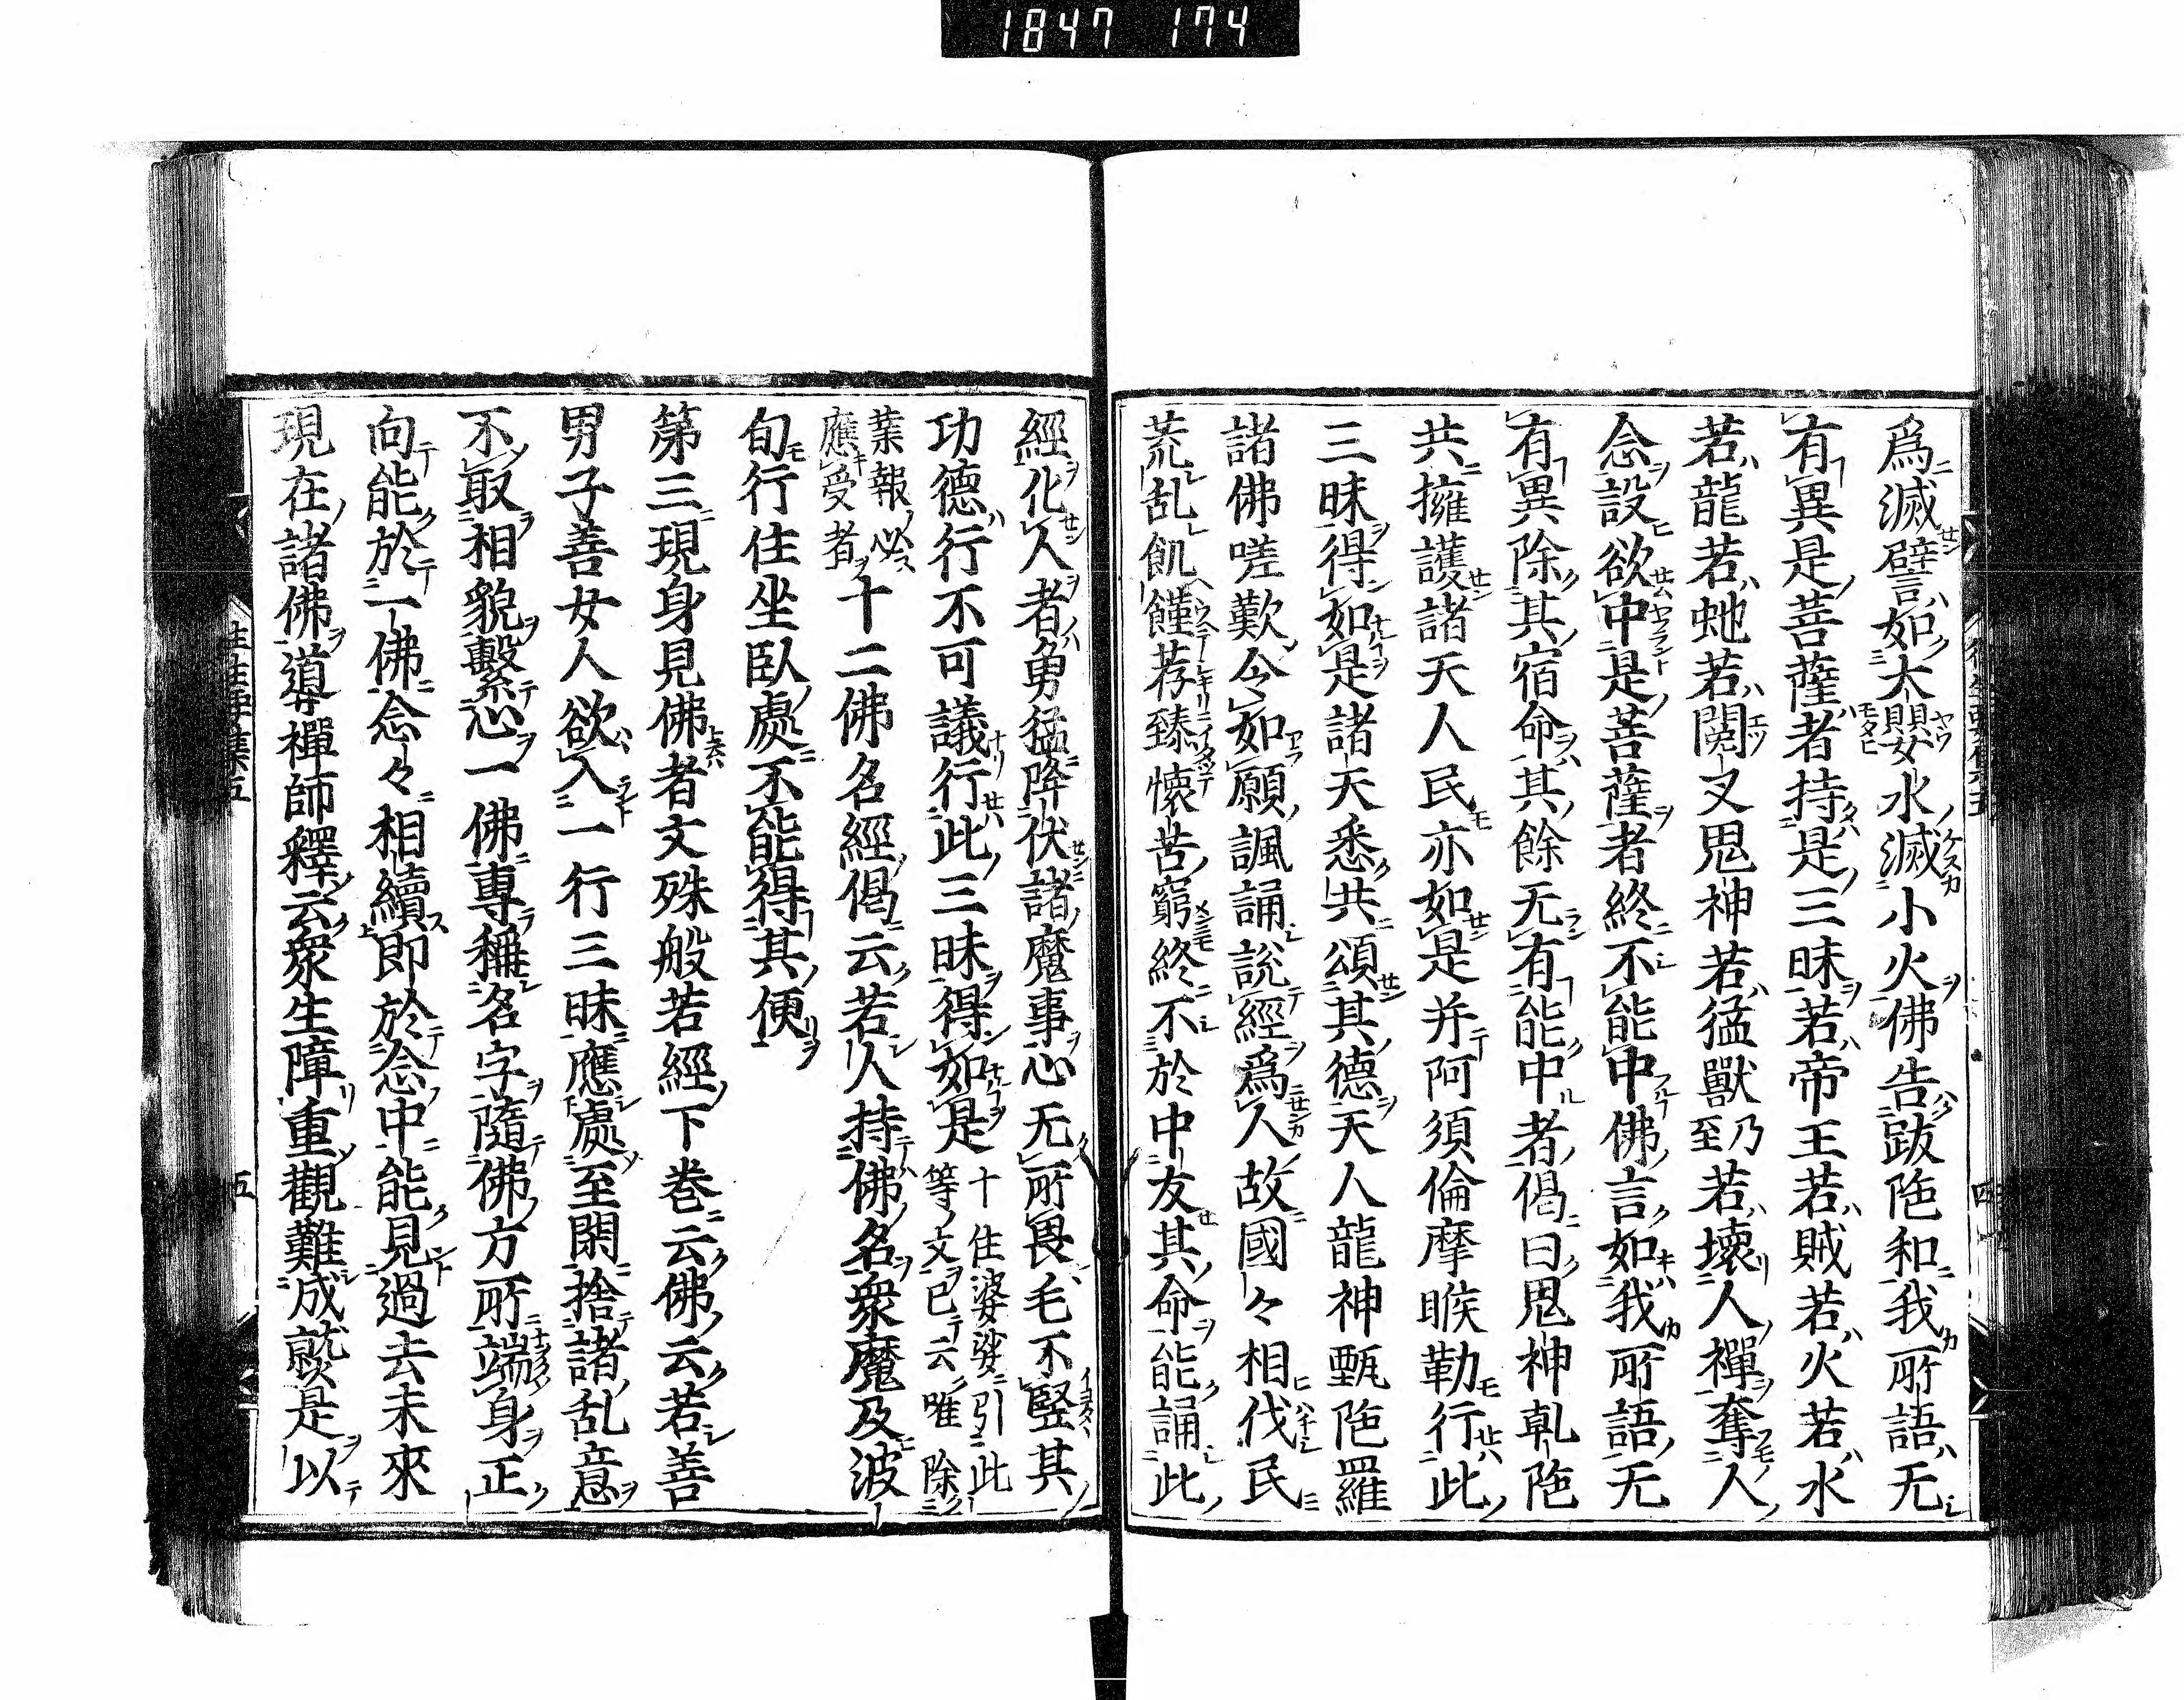 1847 174
爲滅譬如大甖水滅小火佛告跋陁和我所語无
有異是菩薩者持是三昧若帝王若賊若火若水
若龍若虵若閱叉鬼神若猛獸乃至若壞人禪奪人
念設欲中是菩薩者終不能中佛言如我所語无
有異除其宿命其餘无有能中者偈曰鬼神乹陁
共擁護諸天人民亦如是并阿須倫摩睺勒行此
三昧得如是諸天悉共頌其德天人龍神甄陁羅
諸佛嗟歎令如願諷誦說經爲人故國々相伐民
荒乱飢饉荐臻懷苦窮終不於中夭其命能誦此
經化人者勇猛降伏諸魔事心无所畏毛不竪其
功德行不可議行此三昧得如是十住婆娑引此等文已云唯除
業報必應受者十二佛名經偈云若人持佛名衆魔及波
旬行住坐臥處不能得其便
第三現身見佛者文殊般若經下卷云佛云若善
男子善女人欲入一行三昧應處至閑捨諸乱意
不取相貌繫心一佛專稱名字隨佛方所端身正
向能於一佛念々相續即於念中能見過去未來
現在諸佛導禪師釋云衆生障重觀難成就是以